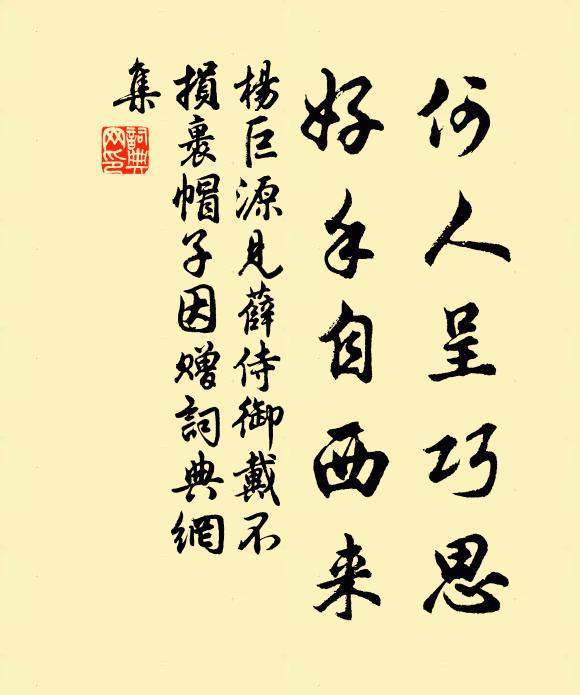 何人呈巧思
好手自西来
楊巨源见薛侍御戴不
損裹帽子因贈詞典網
集
詞典网印